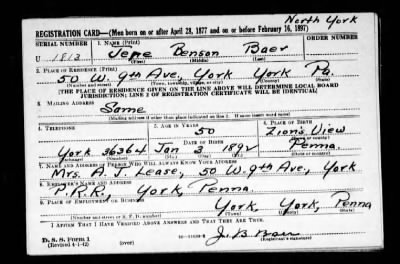 North York
REGISTRATION CARD—(Men born on or after April 28, 1877 and on or before February 16, 1897)
SERIAL NUMBER 1. NAME (Print) ORDER NUMBER
U 1813 Jesse Benson Baer
(First) (Middle) (Last)
2. PLACE OF RESIDENCE (Print)
50 W. 9th Ave, York York Pa.
(Number and street) (Town, township, village, or city) (County) (State)
[THE PLACE OF RESIDENCE GIVEN ON THE LINE ABOVE WILL DETERMINE LOCAL BOARD
JURISDICTION; LINE 2 OF REGISTRATION CERTIFICATE WILL BE IDENTICAL]
3. MAILING ADDRESS
Same
[Mailing address if other than place indicated on line 2. If same insert word same]
4. TELEPHONE 5. AGE IN YEARS 6. PLACE OF BIRTH
50 Zion's View
DATE OF BIRTH
York 36364 Jan 3 1892 Penna.
7. NAME AND ADDRESS OF PERSON WHO WILL ALWAYS KNOW YOUR ADDRESS
Mrs. A. J. Lease, 50 W. 9th Ave, York
8. EMPLOYER'S NAME AND ADDRESS
P.R.R., York, Penna.
9. PLACE OF EMPLOYMENT OR BUSINESS
York, York, Penna
(Number and street or R. F. D. number) (Town) (County) (State)
I AFFIRM THAT I HAVE VERIFIED ABOVE ANSWERS AND THAT THEY ARE TRUE.
D. S. S. Form 1
(Revised 4-1-42) (over) J. B. Baer
(Registrant's signature)